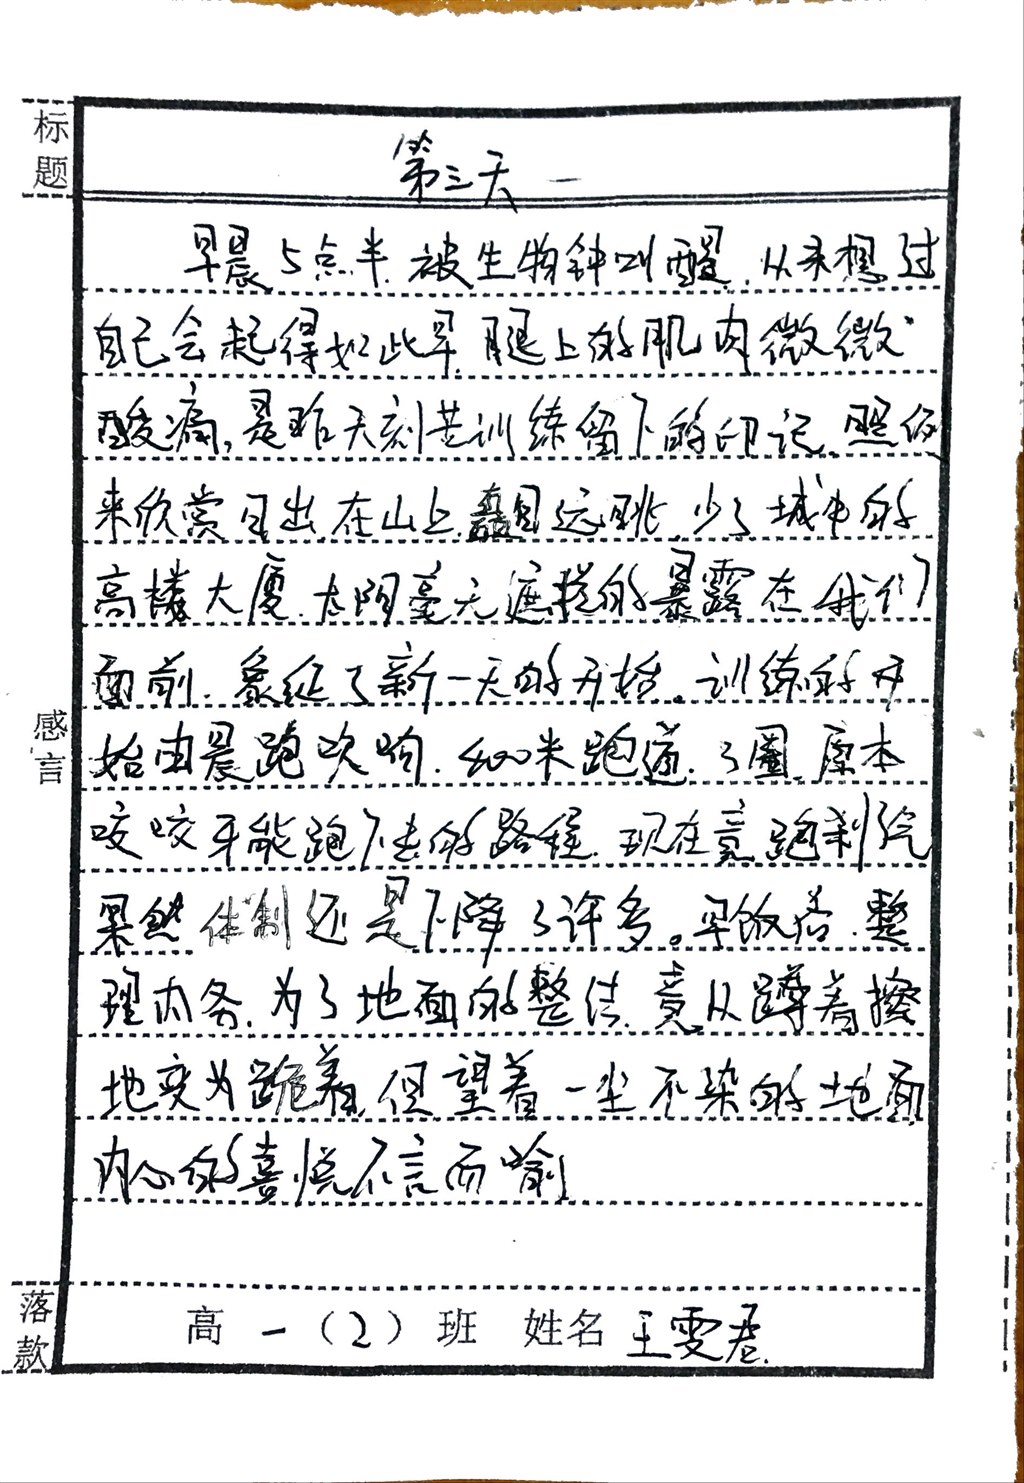 标题
第三天
早晨5点半.被生物钟叫醒.从未想过
自己会起得如此早.腿上的肌肉微微
酸痛,是昨天刻苦训练留下的印记.照例
来欣赏日出.在山上矗目远眺.少了城市的
高楼大厦.太阳毫无遮拦的暴露在我们
面前.象征了新一天的开始.训练的开
始由晨跑吹响.400米跑道.3圈.原本
咬咬牙能跑下去的路程.现在竟跑到
果然体制还是下降了许多。早饭后.整
理内务.为了地面的整洁.竟从蹲着擦
地变为跪着.但望着一尘不染的地面
内心的喜悦不言而喻
感言
落款
高一(2)班 姓名 王雯